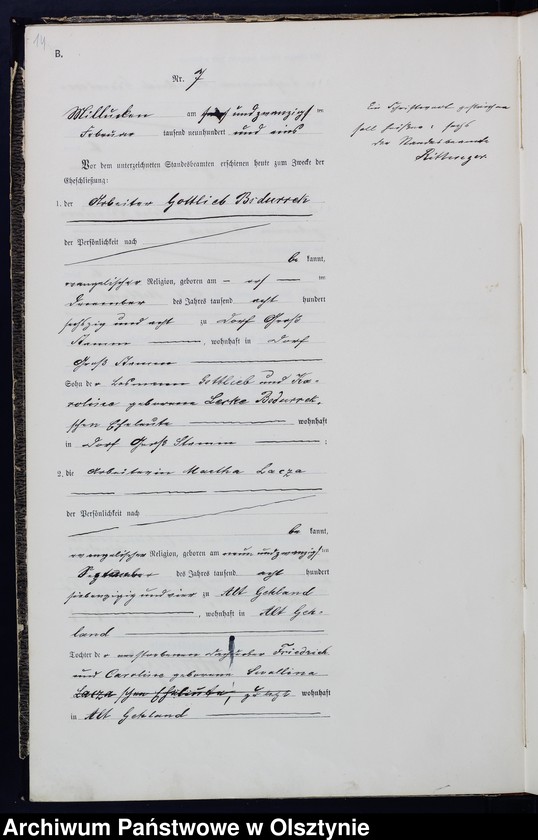 14
B.
Nr. 7
Millucken am und zwanzigsten
Februar tausend neunhundert und eins
Ein Schriftwort gestrichen
soll heißen: sechs
der Standesbeamte
Vor dem unterzeichneten Standesbeamten erschienen heute zum Zwecke der
Eheschließung:
1. der Arbeiter Gottlieb Bidurrek
der Persönlichkeit nach
be kannt,
evangelischer Religion, geboren am ten
Dezember des Jahres tausend acht hundert
sechszig und acht zu Dorf Groß
Stamm, wohnhaft in Dorf
Groß Stamm
Sohn der Losmann Gottlieb und Ka-
roline geborene Bidurrek-
schen Eheleute wohnhaft
in Dorf Groß Stamm;
2. die Arbeiterin Martha Lacza
der Persönlichkeit nach
be kannt,
evangelischer Religion, geboren am neun und zwanzigsten
September des Jahres tausend acht hundert
siebenzig und vier zu Alt Gehland
, wohnhaft in Alt Geh-
land
Tochter der verstorbenen Friedrich
und Caroline geborene
Lacza schen Eheleute, wohnhaft
in Alt Gehland
Archiwum Państwowe w Olsztynie